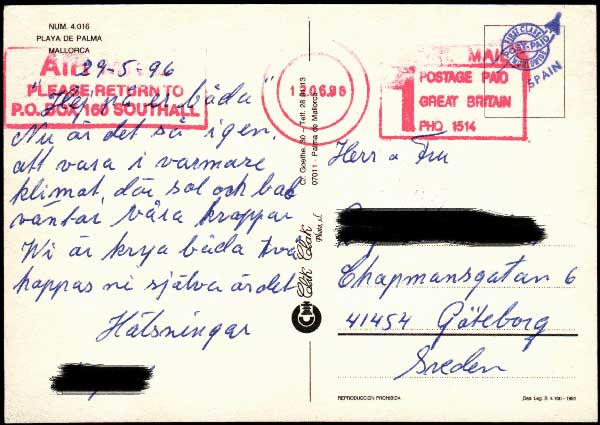 NUM. 4.016
PLAYA DE PALMA
MALLORCA
29-5-96
AIR
PLEASE RETURN TO
P.O. BOX 168 SOUTHALL
"Hej på er båda"
Nu är det så igen,
att vara i varmare
klimat, där sol och bad
väntar våra kroppar
Vi är krya båda två
hoppas ni själva är det
Hälsningar
C/. Goethe, 30 - Telf. 28
07011 - Palma de Mallorca
Clik Clak
Photo, s.l.
06.96
MAIL
1
POSTAGE PAID
GREAT BRITAIN
PHQ 1514
POST-PAID
SPAIN
Herr o Fru
Chapmansgatan 6
41454 Göteborg
Sveden
REPRODUCCION PROHIBIDA
Dep. Leg. B. 4.100 -